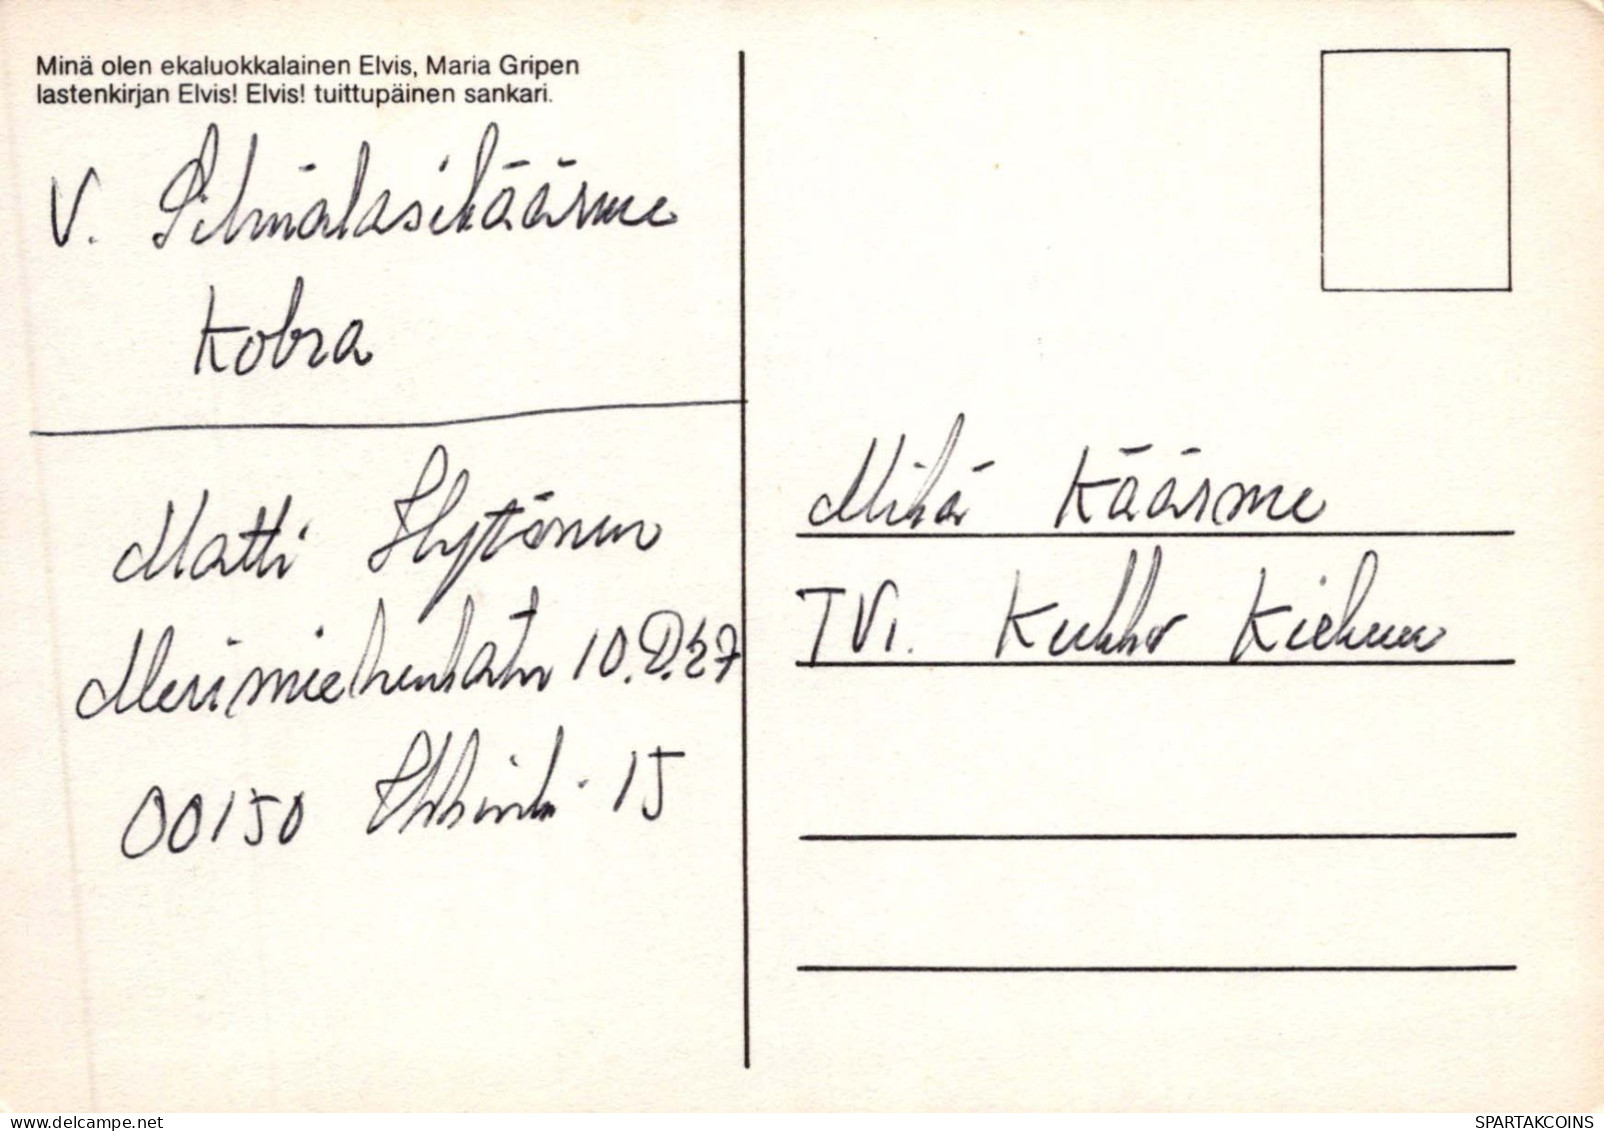 Minä olen ekaluokkalainen Elvis, Maria Gripen
lastenkirjan Elvis! Elvis! tuittupäinen sankari.
V. Silmälasikäärme
Kobra
Matti Hytönen
Merimiehenkatu 10.D.27
00150 Helsinki 15
Mikä Käärme
TV1. Kukko Kiekuu
delcampe.net
SPARTAKCOINS